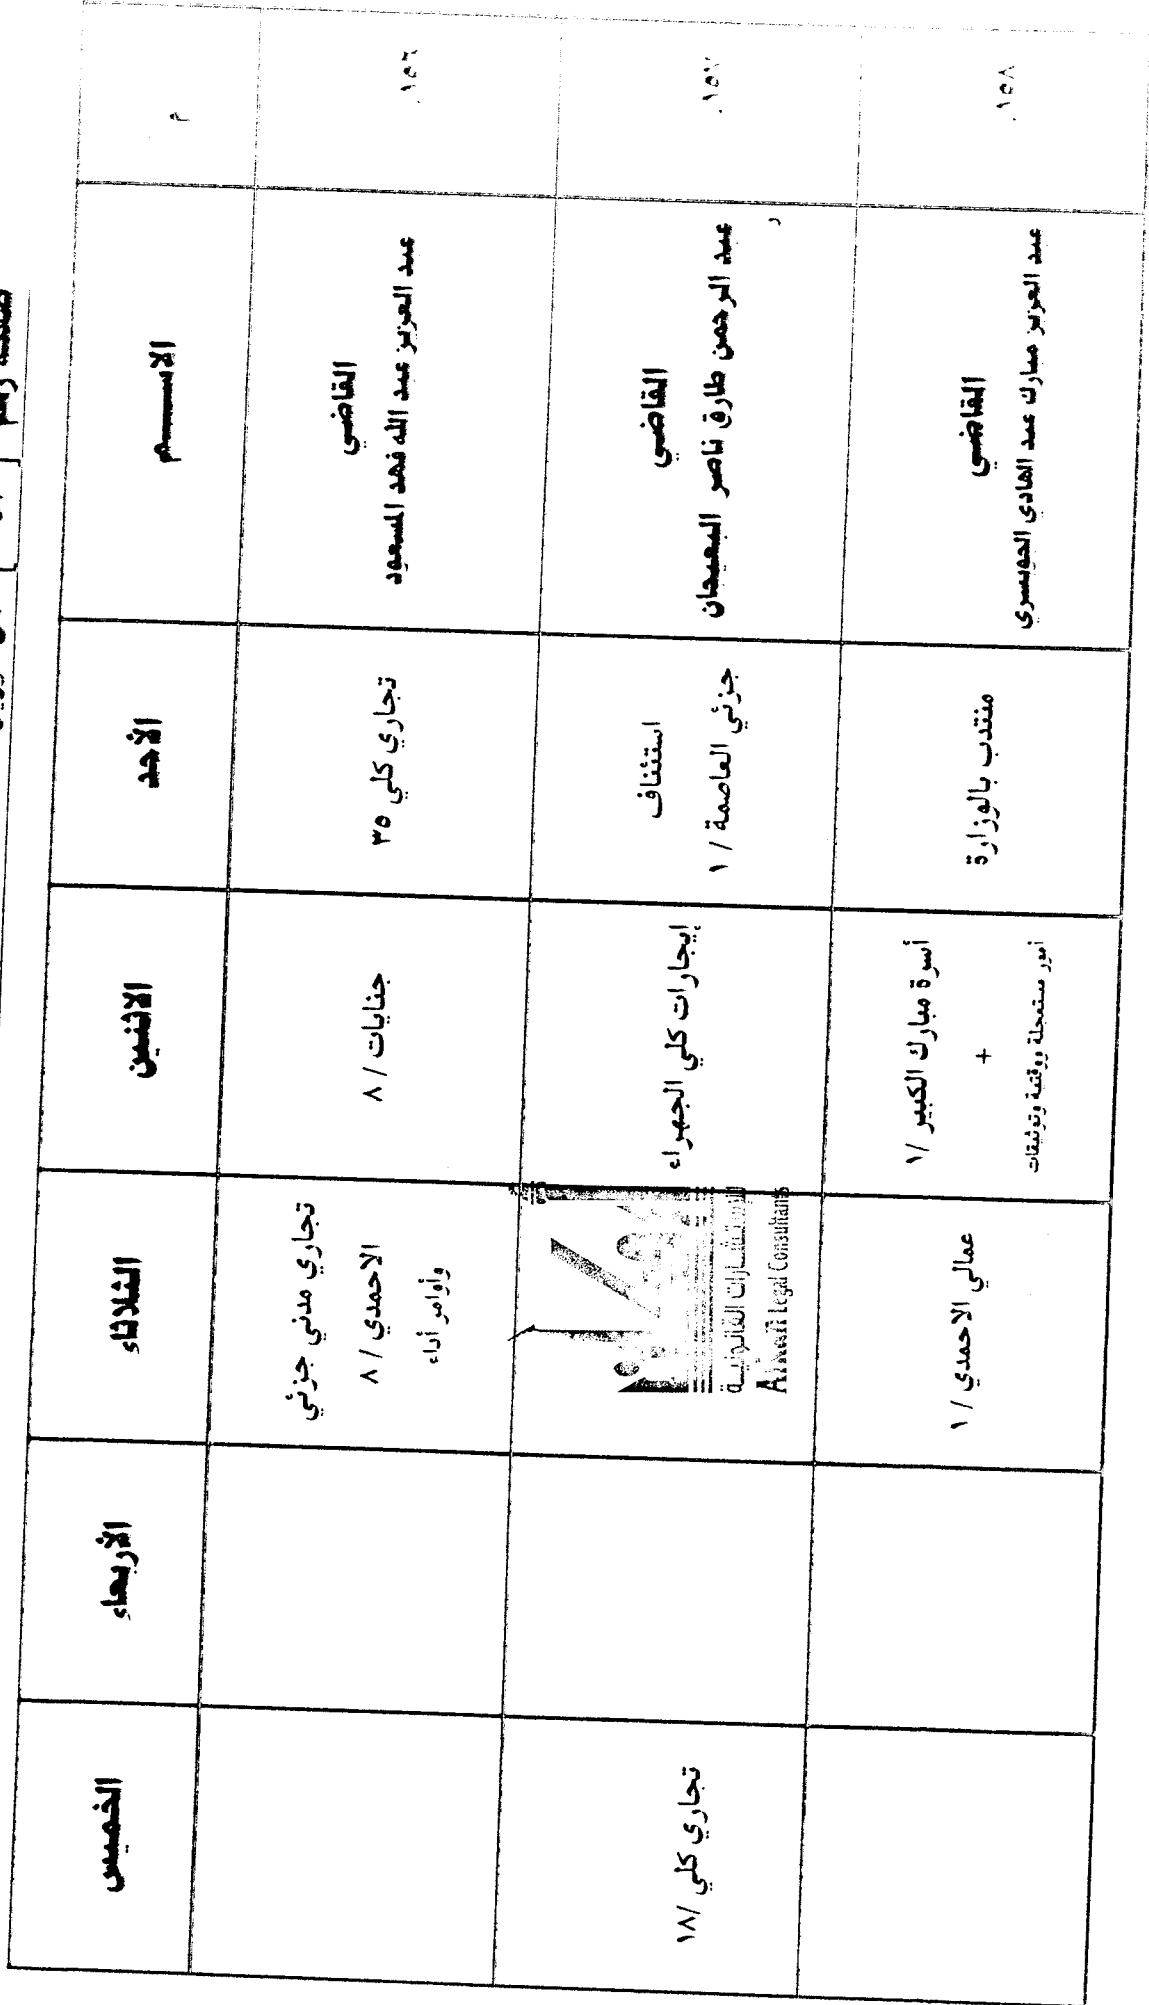 م
الاســـــم
الأحد
الاثنين
الثلاثاء
الأربعاء
الخميس
١٥٦.
القاضي
عبد العزيز عبد الله فهد المسعود
تجاري كلي ٣٥
جنايات / ٨
تجاري مدني جزئي
الاحمدي / ٨
وأوامر أداء
١٥٧.
القاضي
عبد الرحمن طارق ناصر البعيجان
استئناف
جزئي العاصمة / ١
إيجارات كلي الجهراء
للاستشارات القانونية
Arkan Legal Consultants
تجاري كلي /١٨
١٥٨.
القاضي
عبد العزيز مبارك عبد الهادي الدوسري
منتدب بالوزارة
أسرة مبارك الكبير /١
+
أمور مستعجلة ووقتية وتوثيقات
عمالي الاحمدي / ١